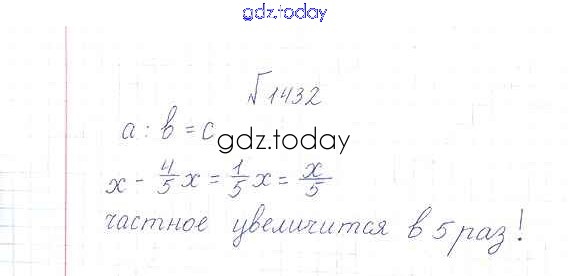 gdz.today
√1432
a : b = c
gdz.today
x - 4/5 x = 1/5 x = x/5
частное увеличится в 5 раз!